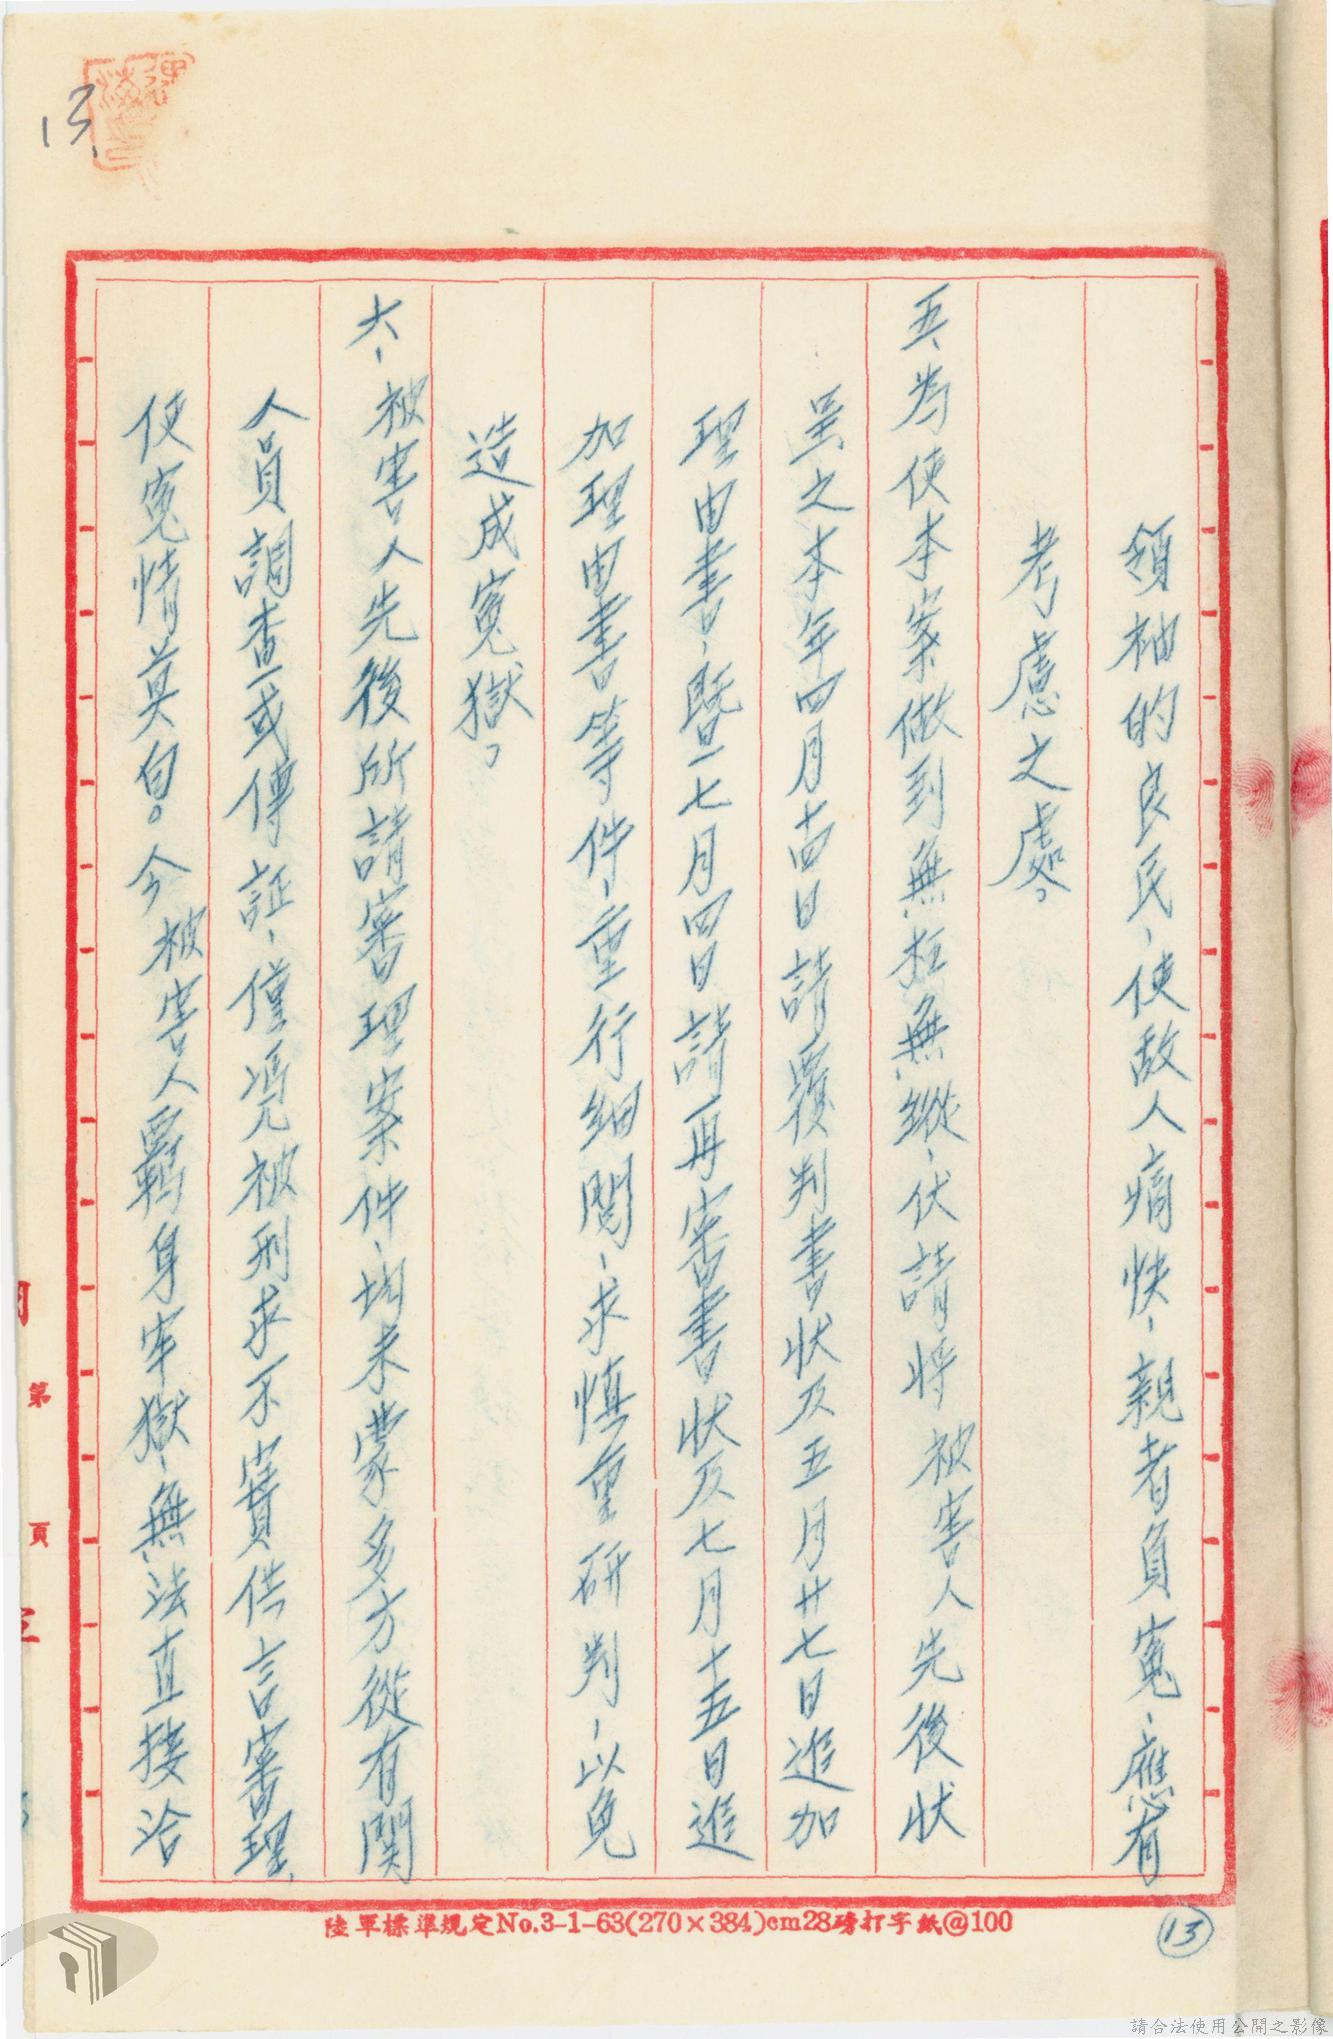 領袖的良民、使敌人痛快、親者負寃、應有
考慮之處。
五、為使本案做到無枉無縱、伏請將被害人先後狀
呈之本年四月十四日請覆判書狀及五月廿七日追加
理由書、既一七月四日請再審書狀及七月十五日追
加理由書等件、重行細閱、求慎重研判、以免
造成寃獄。
六、被害人先後所請審理案件、均未蒙多方從有関
人員調查或傳証、僅凭被刑求不實供言審理、
使寃情莫白。今被害人羈身牢獄、無法直接洽
13
陸軍標準規定No.3-1-63(270×384)cm28磅打字紙@100
13
第 頁
請合法使用公開之影像